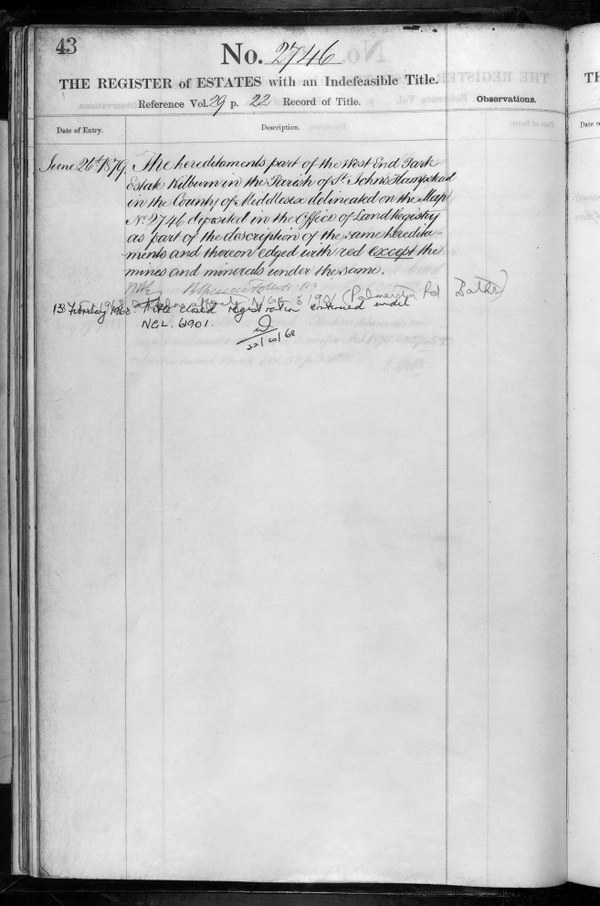 43
No. 2746
THE REGISTER of ESTATES with an Indefeasible Title.
Reference Vol. 29 p. 22 Record of Title.
Observations.
Date of Entry.
Description.
June 26th 1879.
The hereditaments part of the West End Park
Estate Kilburn in the Parish of St. John's Hampstead
in the County of Middlesex delineated on the Map
No. 2746 deposited in the Office of Land Registry
as part of the description of the same heredita-
ments and thereon edged with red except the
mines and minerals under the same.
NGL Palmerston Rd Baths
13 February 1968. Title closed registration continued under
NGL. 61901.
22/10/68